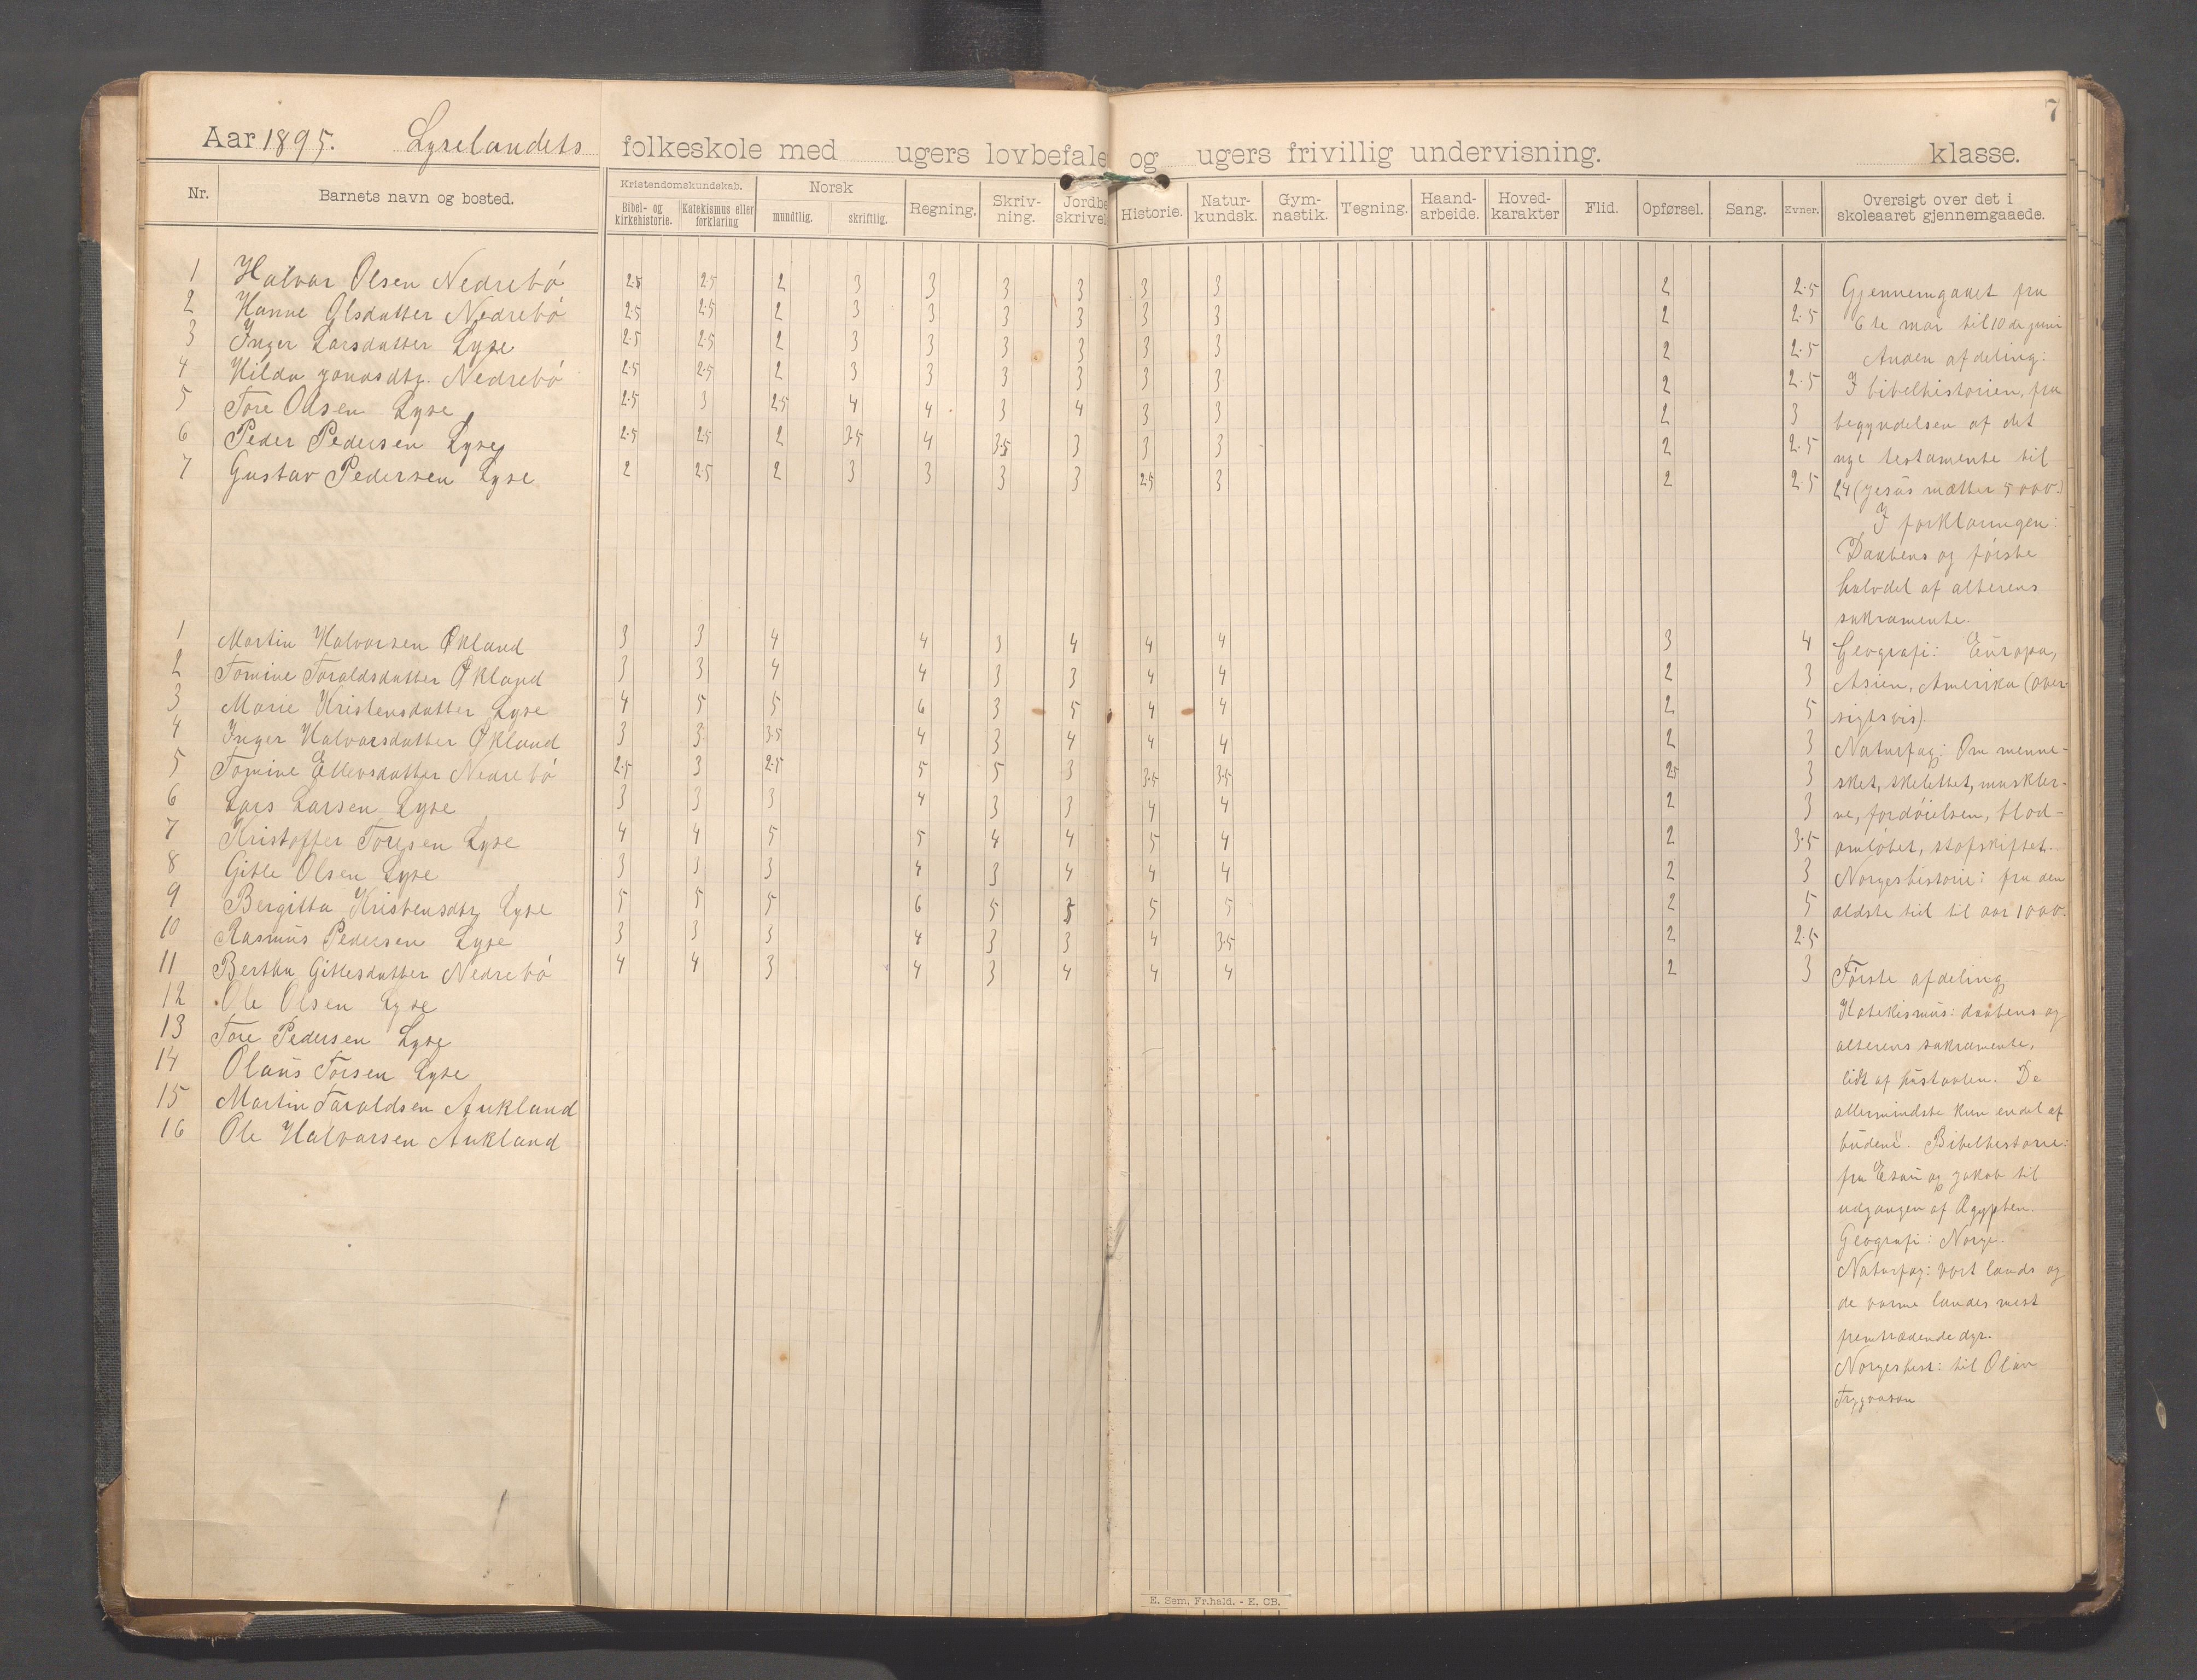 7
Aar 1895. Lyselandets folkeskole med ugers lovbefale og ugers frivillig undervisning. klasse.
Nr. Barnets navn og bosted. Kristendomskundskab. Bibel- og kirkehistorie. Katekismus eller forklaring Norsk mundtlig. skriftlig. Regning. Skriv-ning. Jordbe skrivel Historie. Natur-kundsk. Gym-nastik. Tegning. Haand-arbeide. Hoved-karakter Flid. Opførsel. Sang. Evner. Oversigt over det i skoleaaret gjennemgaaede.
1 Halvar Olsen Nedrebó 2.5 2.5 2 3 3 3 3 3 3 2 2.5
2 Hanne Olsdatter Nedrebó 2.5 2.5 2 3 3 3 3 3 3 2 2.5
3 Inger Larsdatter Lyse 2.5 2.5 2 3 3 3 3 3 3 2 2.5
4 Hilda Jonasdtr. Nedrebó 2.5 2.5 2 3 3 3 3 3 3 2 2.5
5 Tore Olsen Lyse 2.5 3 2.5 4 4 3 4 3 3 2 3
6 Peder Pedersen Lyse 2.5 2.5 2 3.5 4 3.5 3 3 3 2 2.5
7 Gustav Pedersen Lyse 2 2.5 2 3 3 3 3 2.5 3 2 2.5
1 Martin Halvorsen Økland 3 3 4 4 3 4 4 4 3 4
2 Tomine Taraldsdatter Økland 3 3 4 4 3 3 4 4 2 3
3 Marie Kristensdatter Lyse 4 5 5 6 3 5 4 4 2 5
4 Inger Halvorsdatter Økland 3 3 3.5 4 3 4 4 4 2 3
5 Tomine Ellevsdatter Nedrebó 2.5 3 2.5 5 5 3 3.5 3.5 2.5 3
6 Lars Larsen Lyse 3 3 3 4 3 3 4 4 2 3
7 Kristoffer Toresen Lyse 4 4 5 5 4 4 5 4 2 3.5
8 Gitle Olsen Lyse 3 3 3 4 3 4 4 4 2 3
9 Bergitta Kristensdtr Lyse 5 5 5 6 5 5 5 2 5
10 Rasmus Pedersen Lyse 3 3 3 4 3 3 4 3.5 2 2.5
11 Bertha Gitlesdatter Nedrebó 4 4 3 4 3 4 4 4 2 3
12 Ole Olsen Lyse
13 Tore Pedersen Lyse
14 Olaus Torsen Lyse
15 Martin Taraldsen Aukland
16 Ole Halvorsen Aukland
Gjennemgaaet fra
6te mar til 10de juni
Anden afdeling:
I bibelhistorien, fra
begyndelsen af det
nye testamente til
24 (Jesus mætter 5000.)
I forklaringen:
Daabens og første
halvdel af alterens
sakramente.
Geografi: Europa,
Asien, Amerika (over-
sigtsvis).
Naturfag: Om menne-
sket, skelettet, muskler-
ne, fordóielsen, blod-
omløbet, stofskiftet.
Norgeshistorie: fra den
ældste tid til aar 1000.
Første afdeling
Katekismus: daabens og
alterens sakramente,
lidt af hustavlen. De
allermindste kun endel af
budene. Bibelhistorie:
fra Esau og Jakob til
udgangen af Ægypten.
Geografi: Norge.
Naturfag: vort lands og
de varme landes mest
fremtrædende dyr.
Norgeshist: til Olav
Trygvason
E. Sem, Fr.hald. - E. CB.